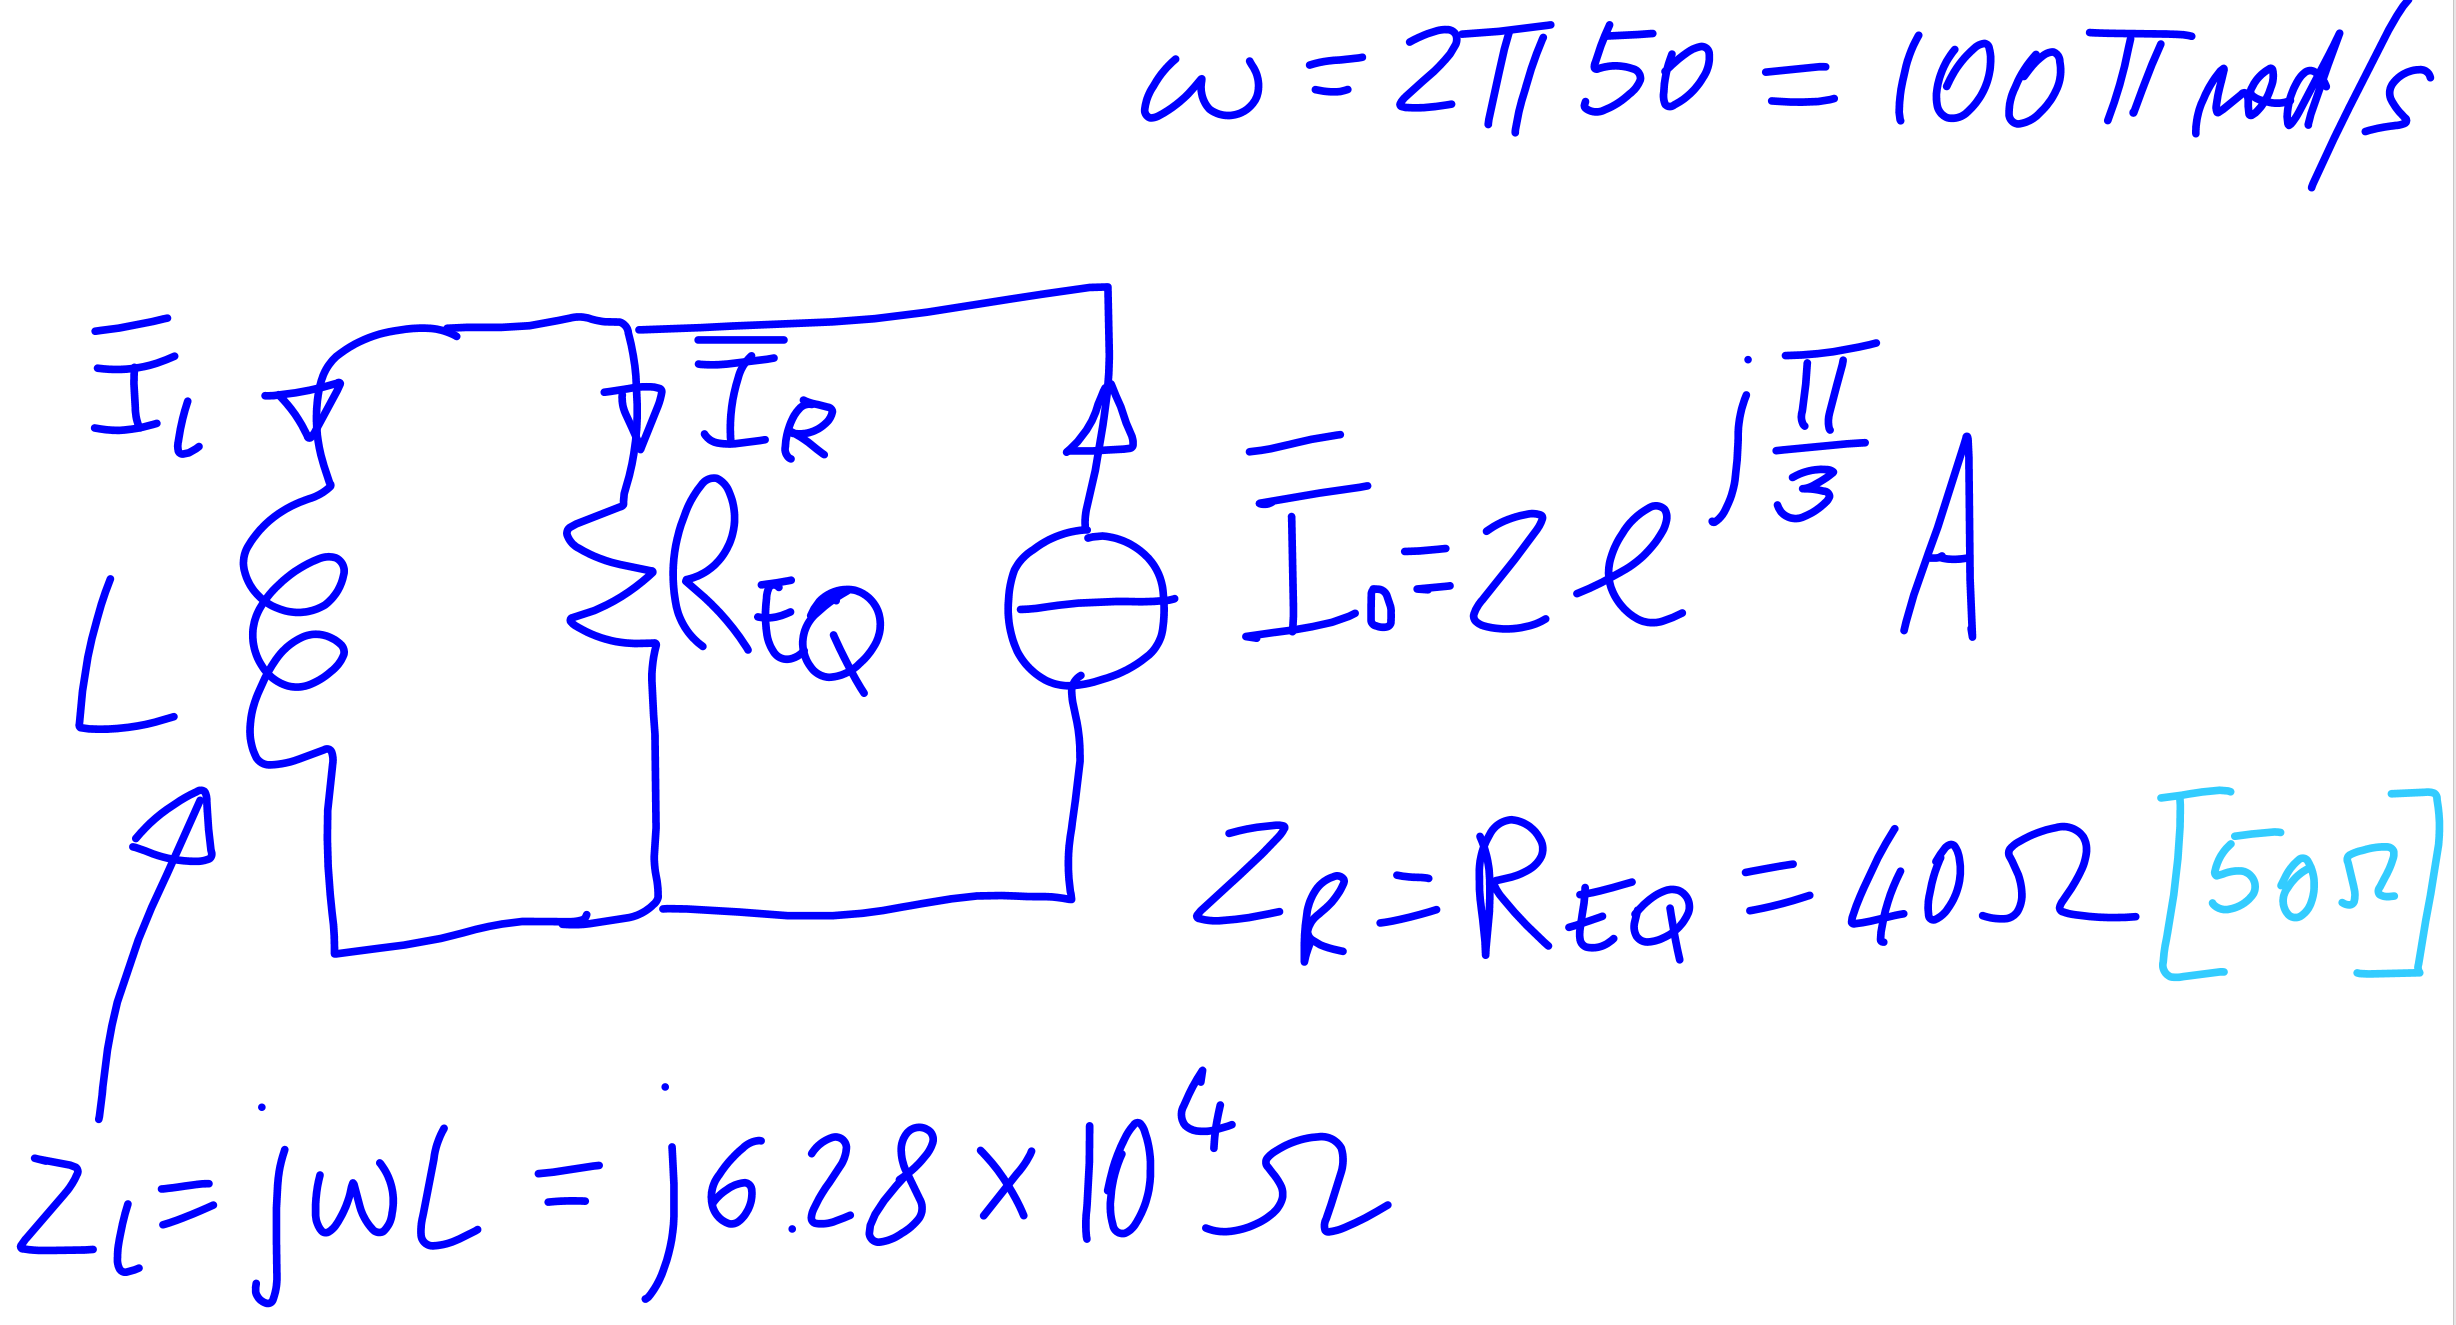 ω = 2π 50 = 100π rad/s
I̅_L
I̅_R
L
R_EQ
I̅_0 = 2 e^{j π/3} A
Z_R = R_EQ = 40 Ω [50Ω]
Z_L = jωL = j 6.28 × 10^4 Ω